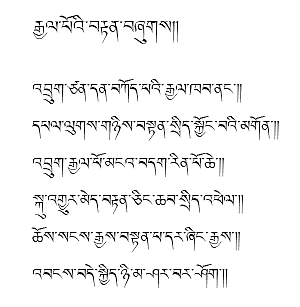 རྒྱལ་པོའི་བརྟན་བཞུགས།།
འབྲུག་ཙན་དན་བཀོད་པའི་རྒྱལ་ཁབ་ནང་༎
དཔལ་ལུགས་གཉིས་བསྟན་སྲིད་སྐྱོང་བའི་མགོན་༎
འབྲུག་རྒྱལ་པོ་མངའ་བདག་རིན་པོ་ཆེ་༎
སྐུ་འགྱུར་མེད་བརྟན་ཅིང་ཆབ་སྲིད་འཕེལ་༎
ཆོས་སངས་རྒྱས་བསྟན་པ་དར་ཞིང་རྒྱས་༎
འབངས་བདེ་སྐྱིད་ཉི་མ་ཤར་བར་ཤོག་༎